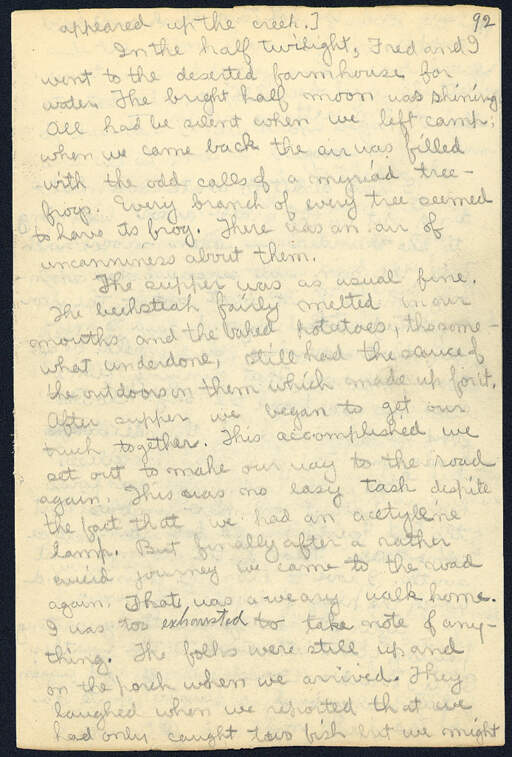 92
appeared up the creek.]
In the half twilight, Fred and I
went to the deserted farmhouse for
water. The bright half moon was shining.
All had be silent when we left camp;
when we came back the air was filled
with the odd calls of a myriad tree-
frogs. Every branch of every tree seemed
to have its frog. There was an air of
uncanniness about them.
The supper was as usual fine.
The beefsteak fairly melted in our
mouths and the baked potatoes, tho some-
what underdone, still had the sauce of
the outdoors on them which made up for it.
After supper we began to get our
truck together. This accomplished we
set out to make our way to the road
again. This was no easy task despite
the fact that we had an acetylene
lamp. But finally after a rather
weird journey we came to the road
again. That was a weary walk home.
I was too exhausted to take note of any-
thing. The folks were still up and
on the porch when we arrived. They
laughed when we reported that we
had only caught two fish but we might